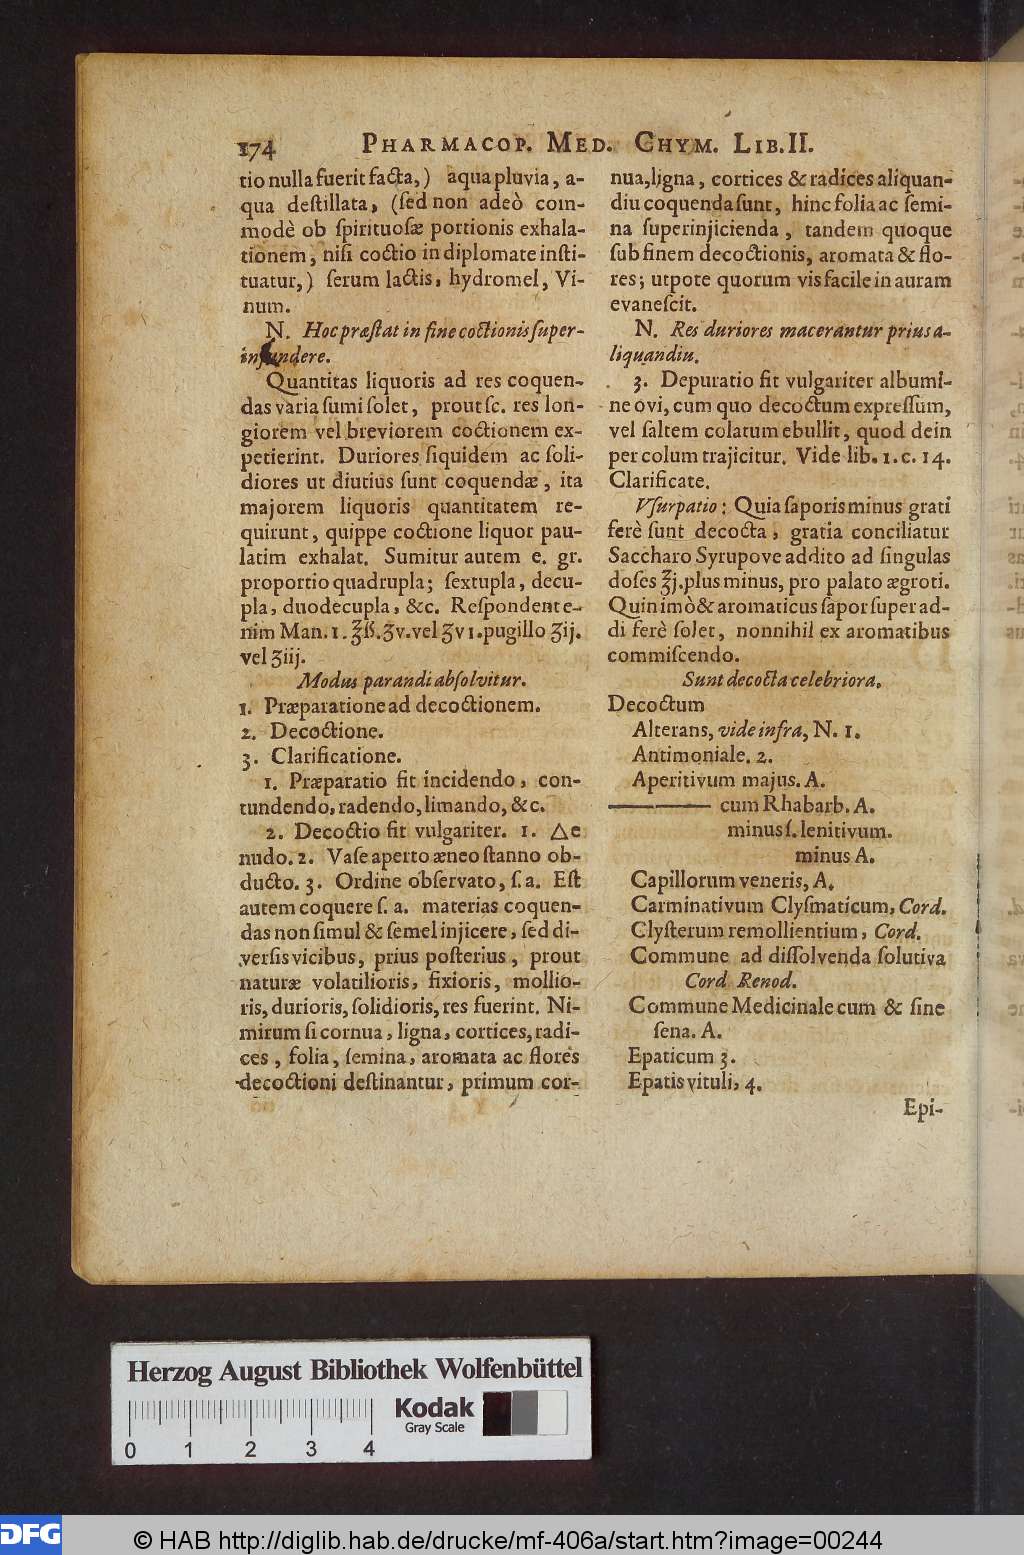 174 PHARMACOP. MED. CHYM. LIB. II.
tio nulla fuerit facta,) aqua pluvia, a-
qua deſtillata, (ſed non adeò com-
modè ob ſpirituoſæ portionis exhala-
tionem, niſi coctio in diplomate inſti-
tuatur,) ſerum lactis, hydromel, Vi-
num.
N. Hoc præſtat in fine coctionis ſuper-
infundere.
Quantitas liquoris ad res coquen-
das varia ſumi ſolet, prout ſc. res lon-
giorem vel breviorem coctionem ex-
petierint. Duriores ſiquidem ac ſoli-
diores ut diutius ſunt coquendæ, ita
majorem liquoris quantitatem re-
quirunt, quippe coctione liquor pau-
latim exhalat. Sumitur autem e. gr.
proportio quadrupla; ſextupla, decu-
pla, duodecupla, &c. Reſpondent e-
nim Man. 1. ℥ß. ʒv. vel ʒvı. pugillo ʒij.
vel ʒiij.
Modus parandi abſolvitur.
1. Præparatione ad decoctionem.
2. Decoctione.
3. Clarificatione.
1. Præparatio fit incidendo, con-
tundendo, radendo, limando, &c.
2. Decoctio fit vulgariter. 1. △e
nudo. 2. Vaſe aperto æneo ſtanno ob-
ducto. 3. Ordine obſervato, ſ. a. Eſt
autem coquere ſ. a. materias coquen-
das non ſimul & ſemel injicere, ſed di-
verſis vicibus, prius poſterius, prout
naturæ volatilioris, fixioris, mollio-
ris, durioris, ſolidioris, res fuerint. Ni-
mirum ſi cornua, ligna, cortices, radi-
ces, folia, ſemina, aromata ac flores
decoctioni deſtinantur, primum cor-
nua, ligna, cortices & radices aliquan-
diu coquenda ſunt, hinc folia ac ſemi-
na ſuperinjicienda, tandem quoque
ſub finem decoctionis, aromata & flo-
res; utpote quorum vis facile in auram
evaneſcit.
N. Res duriores macerantur prius a-
liquandiu.
3. Depuratio fit vulgariter albumi-
ne ovi, cum quo decoctum expreſſum,
vel ſaltem colatum ebullit, quod dein
per colum trajicitur. Vide lib. 1. c. 14.
Clarificate.
Vſurpatio: Quia ſaporis minus grati
ferè ſunt decocta, gratia conciliatur
Saccharo Syrupove addito ad ſingulas
doſes ℥j. plus minus, pro palato ægroti.
Quin imò & aromaticus ſapor ſuperad-
di ferè ſolet, nonnihil ex aromatibus
commiſcendo.
Sunt decocta celebriora.
Decoctum
Alterans, vide infra, N. 1.
Antimoniale. 2.
Aperitivum majus. A.
——— cum Rhabarb. A.
minus ſ. lenitivum.
minus A.
Capillorum veneris, A.
Carminativum Clyſmaticum, Cord.
Clyſterum remollientium, Cord.
Commune ad diſſolvenda ſolutiva
Cord Renod.
Commune Medicinale cum & ſine
ſena. A.
Epaticum 3.
Epatis vituli, 4.
Epi-
Herzog August Bibliothek Wolfenbüttel
Kodak
Gray Scale
0 1 2 3 4
DFG
© HAB http://diglib.hab.de/drucke/mf-406a/start.htm?image=00244